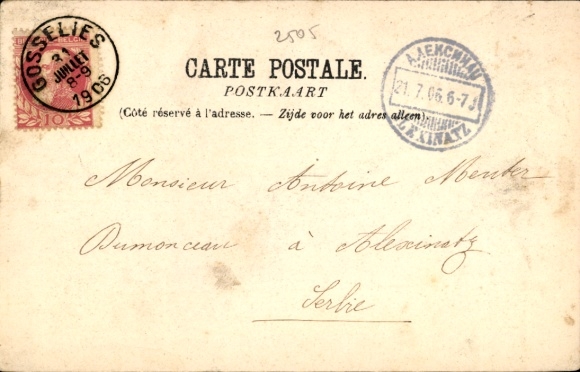 2505
GOSSELIES
31
JUILLET
8-9
1906
10
CARTE POSTALE.
POSTKAART
(Côté réservé à l'adresse. — Zijde voor het adres alleen).
АЛЕКСИНАЦ
21.7.06.6-7
ALEXINATZ
Monsieur Antoine Menter
Dumonceau à Alexinatz
Serbie